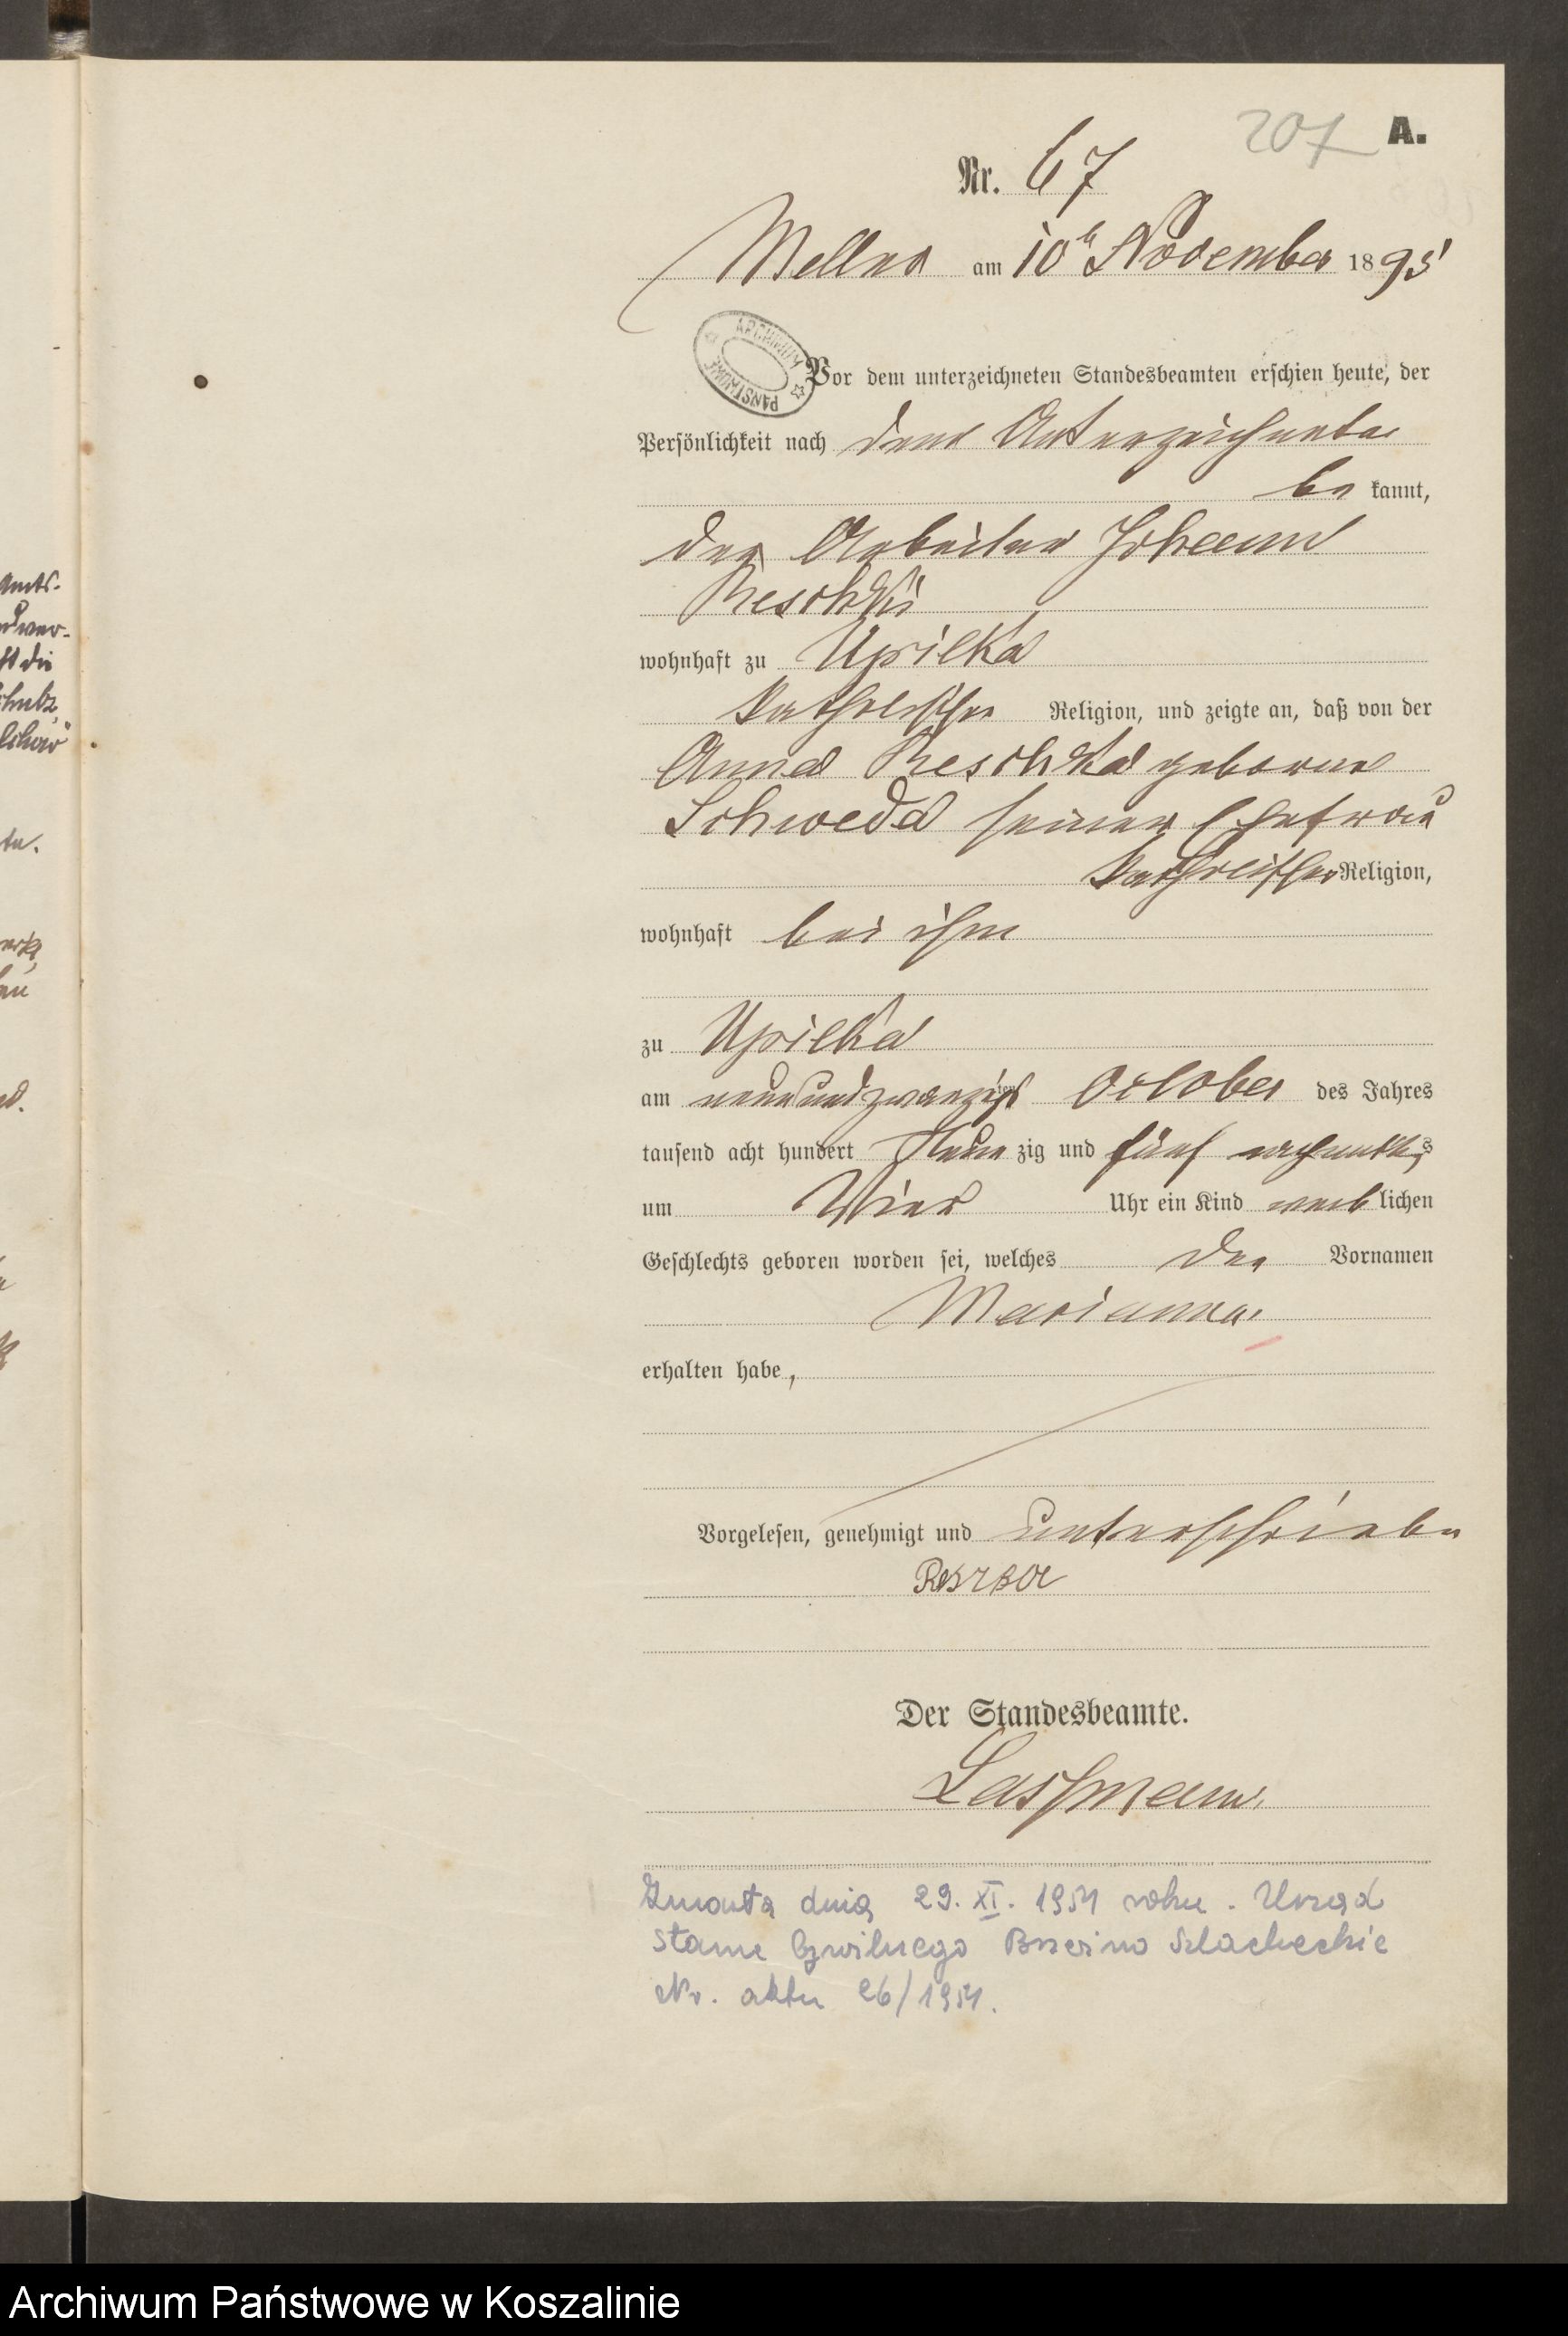 207 A.
Nr. 67
Mellno am 10ten November 1895
ARCHIWUM PAŃSTWOWE
Vor dem unterzeichneten Standesbeamten erschien heute, der
Persönlichkeit nach dem Unterzeichneten
be kannt,
der Arbeiter Johann
Reschki
wohnhaft zu Upilka
katholischer Religion, und zeigte an, daß von der
Anna Reschka geborne
Schweda seiner Ehefrau
katholischer Religion,
wohnhaft bei ihm
zu Upilka
am neunundzwanzigsten October des Jahres
tausend acht hundert Neun zig und fünf nachmittags
um Vier Uhr ein Kind weib lichen
Geschlechts geboren worden sei, welches den Vornamen
Marianna
erhalten habe,
Vorgelesen, genehmigt und unterschrieben
Der Standesbeamte.
Lassmann.
Zmarła dnia 29. XI. 1951 roku. Urząd
Stanu Cywilnego Brzeźno Szlacheckie
Nr. aktu 26/1951.
Amts-
ft die
te.
Archiwum Państwowe w Koszalinie